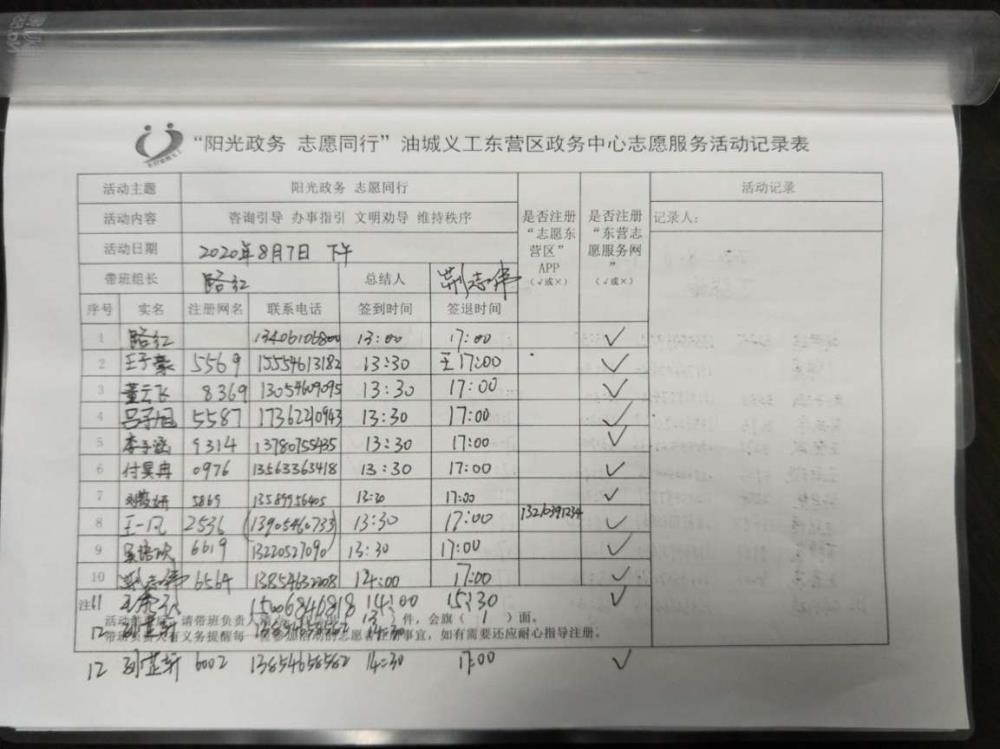 “阳光政务 志愿同行”油城义工东营区政务中心志愿服务活动记录表
活动主题 阳光政务 志愿同行 是否注册“志愿东营区”APP（√或×） 是否注册“东营志愿服务网”（√或×） 活动记录
活动内容 咨询引导 办事指引 文明劝导 维持秩序 记录人：
活动日期 2020年8月7日 下午
带班组长 路红 总结人 荆志伟
序号 实名 注册网名 联系电话 签到时间 签退时间
1 路红 13406106800 13:00 17:00 ✓
2 王子豪 5569 15554613182 13:30 王17:00 ✓
3 董云飞 8369 13054609095 13:30 17:00 ✓
4 吕子旭 5587 17362210943 13:30 17:00 ✓
5 李子涵 9314 13780755435 13:30 17:00 ✓
6 付昊冉 0976 13563363418 13:30 17:00 ✓
7 5869 13589956405 13:30 17:00 ✓
8 王一凡 2536 (13905460733) 13:30 17:00 13210391234 ✓
9 吴语欢 6619 13220527090 13:30 17:00 ✓
10 荆志伟 6564 13854632208 14:00 17:00 ✓
注11 15006846818 14:00 15:30 ✓
请带班负责人 件，会旗（ 1 ）面。
12 14:30
带班负责人有义务提醒每一位参加活动的志愿者 事宜，如有需要还应耐心指导注册。
12 刘芷轩 6002 13854658562 14:30 17:00 ✓